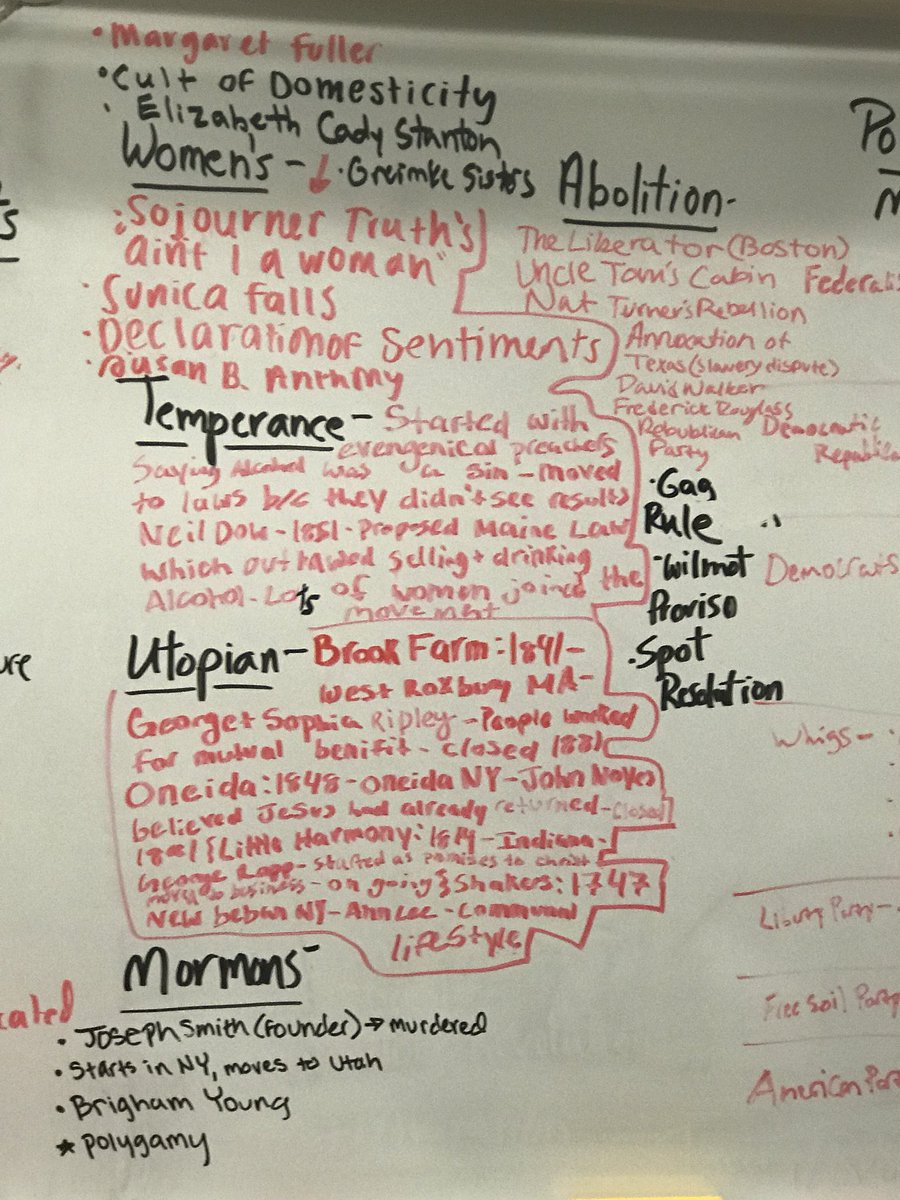 • Margaret Fuller
• Cult of Domesticity
• Elizabeth Cady Stanton
Women's - ↓ • Greimke Sisters
• Sojourner Truth's
ain't I a woman"
• Sunica falls
• Declaration of Sentiments
• Susan B. Anthmy
Abolition -
The Liberator (Boston)
Uncle Tom's Cabin
Nat Turner's Rebellion
Annocation of
Texas (slavery dispute)
David Walker
Frederick Douglass
Republican
Party
• Gag
Rule
- Wilmot
Proviso
• Spot
Resolution
Temperance - Started with
evengenical preachers
Saying Alcohol was a sin - moved
to laws b/c they didn't see results
Neil Dow - 1851 - Proposed Maine Law
which outlawed selling + drinking
Alcohol - Lots of women joined the
movement
Utopian - Brook Farm: 1841 -
West Roxbury MA -
George + Sophia Ripley - People worked
for mutual benifit - closed 1881
Oneida: 1848 - Oneida NY - John Noyes
believed Jesus had already returned - closed
{Little Harmony: 1814 - Indiana -
George Rapp - started as promises to christ
moved to business - on going} Shakers: 1747
New NY - Ann Lee - Communal
lifestyle
Mormons -
• Joseph Smith (Founder) → murdered
• Starts in NY, moves to Utah
• Brigham Young
★ Polygamy
cated
Po
Federalis
Democratic
Republica
Democrats
Whigs -
Liberty Party -
Free Soil Party
American Par